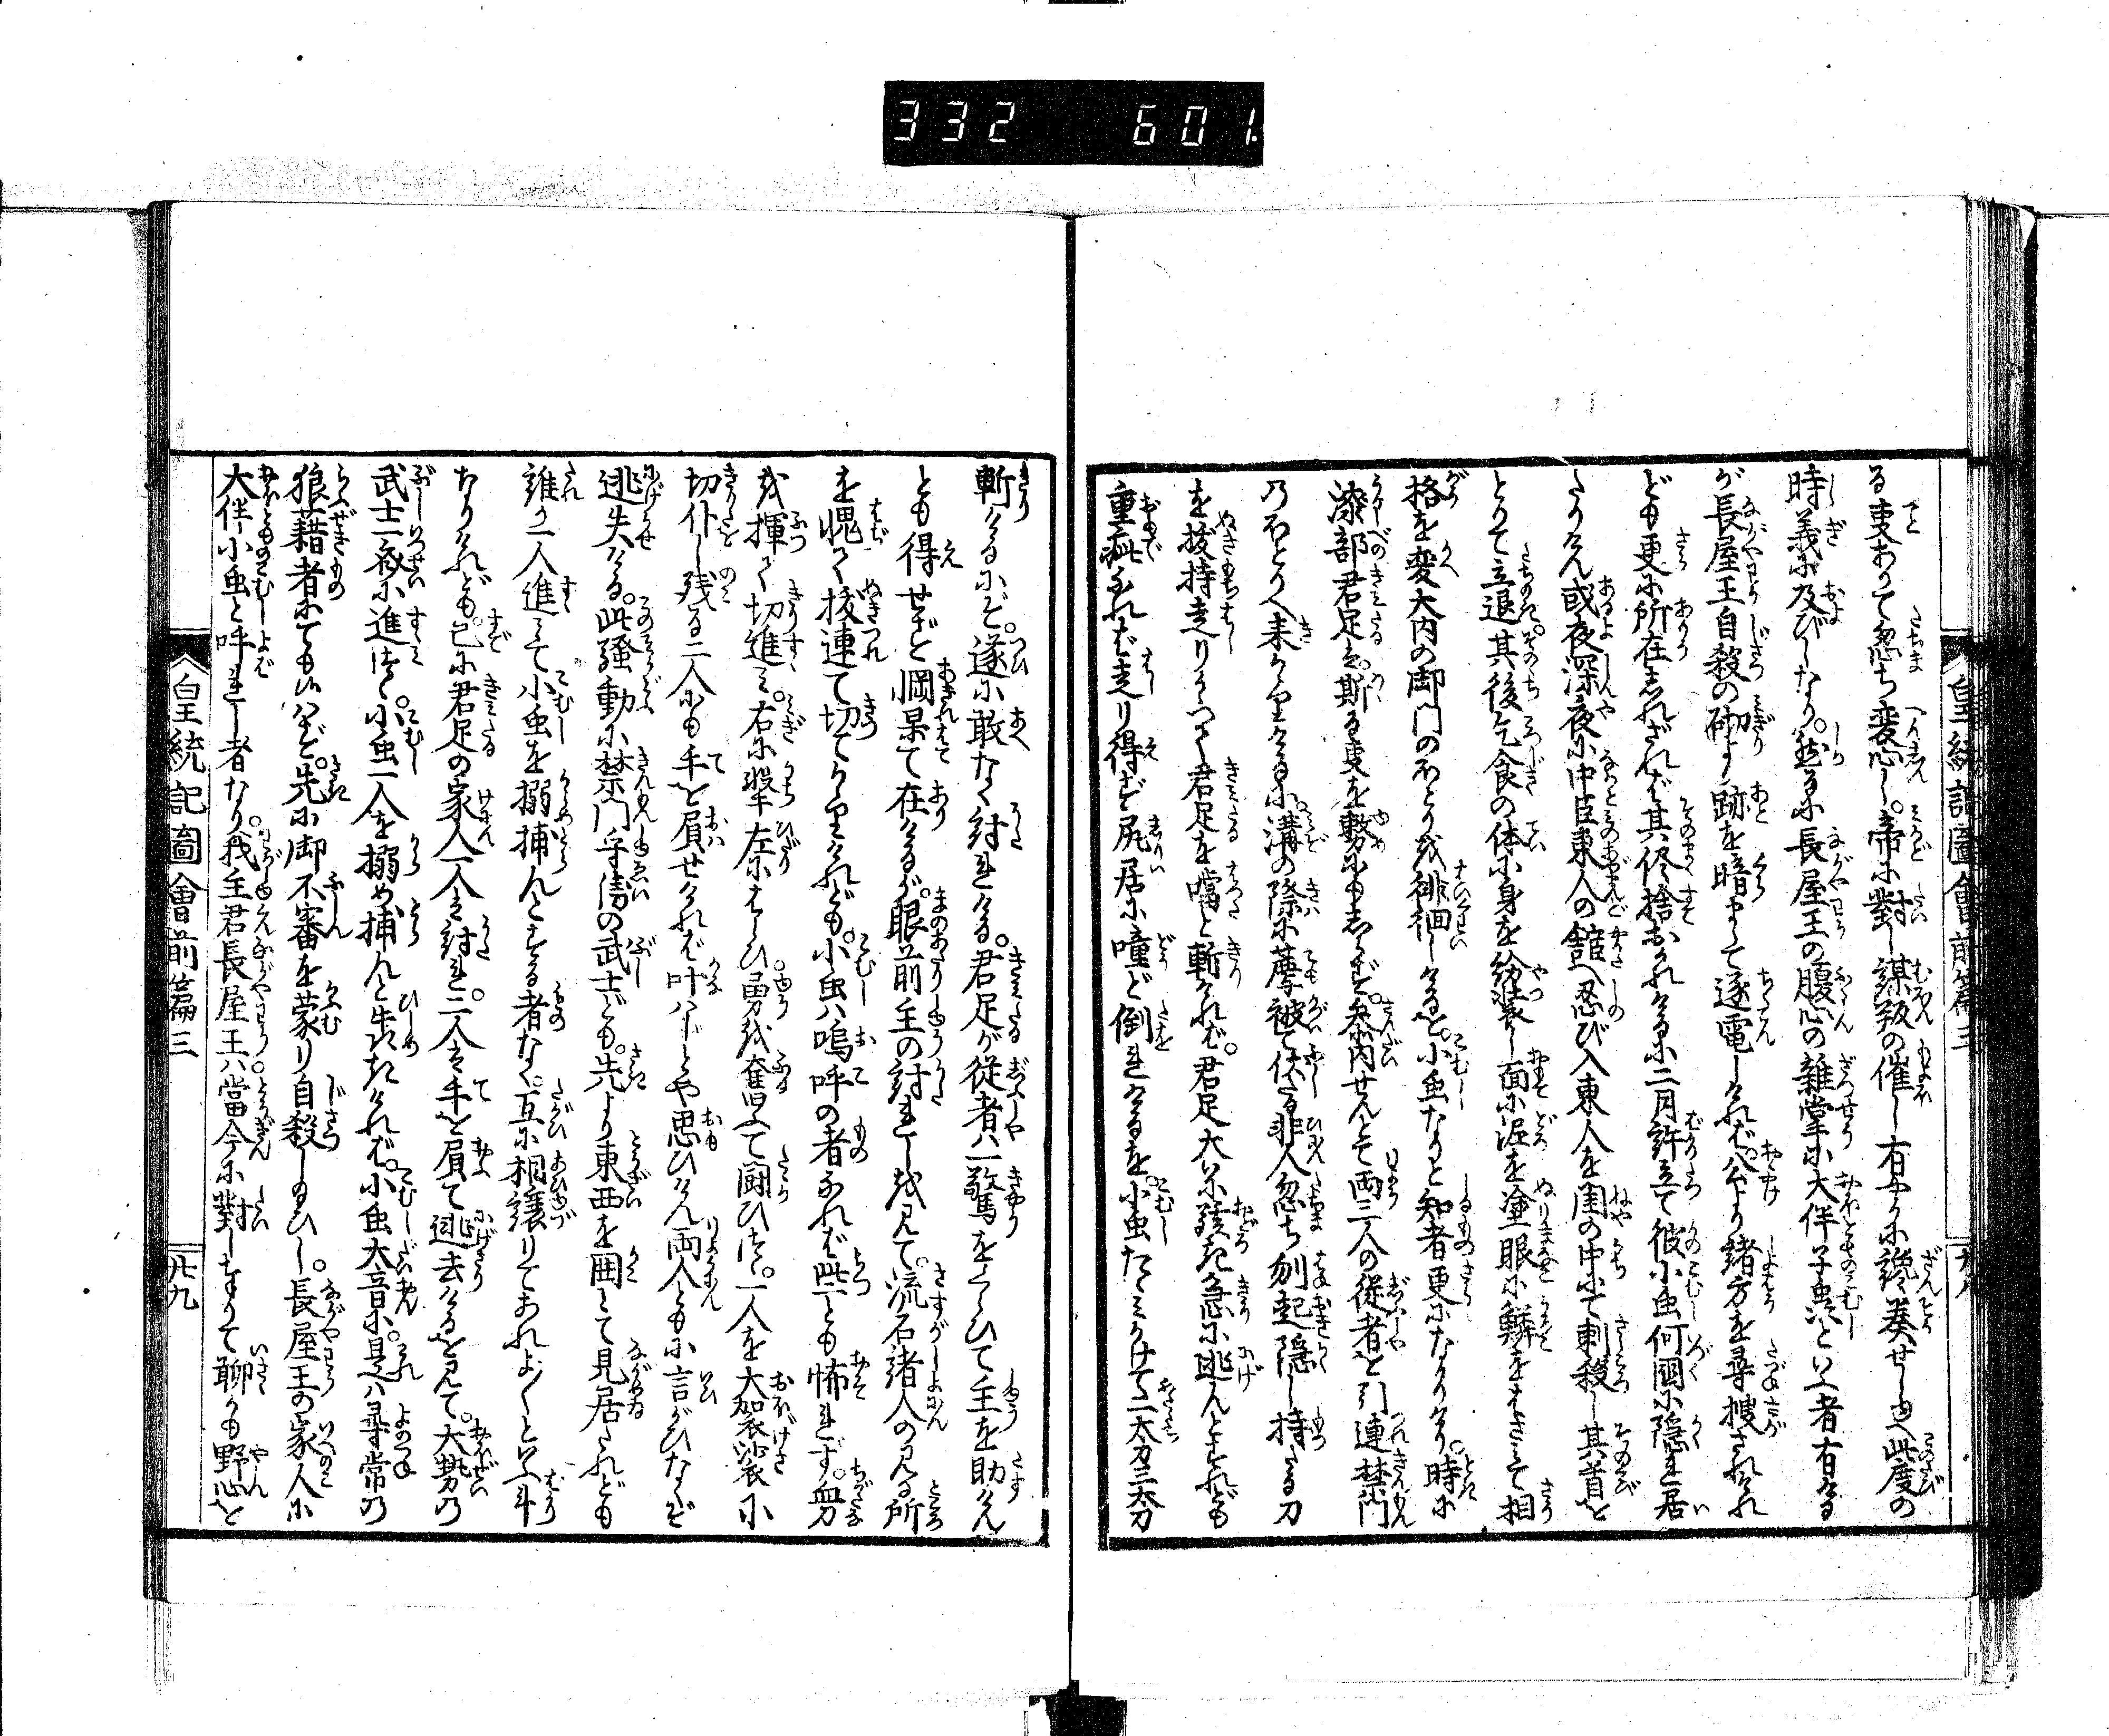 332 601.
皇統記圖會前篇三
る事ありて忽ち変心し。帝に對し謀叛の催し有やうに讒奏せしゆへ此度の
時義に及びしなり。然るに長屋王の腹心の雑掌に大伴子虫といふ者有ける
が長屋王自殺の砌より跡を暗まして逐電しければ。公より諸方を尋捜されけれ
ども更に所在しれざれば其侭捨おかれけるに二月許立て彼小虫何國に隠れ居
たりけん或夜深夜に中臣東人の舘へ忍び入東人を閨の中にて刺殺し其首を
とりて立退。其後乞食の体に身を紛装し面に泥を塗眼に鱗をはさみて相
格を変大内の御門のほとりを徘徊しけるを。小虫なりと知者更になかりけり。時に
漆部君足は。斯る事を夢にもしらず。参内せんとて両三人の従者を引連禁門
のほとりへ来かゝりけるに。溝の際に薦被て伏たる非人忽ち刎起隠し持たる刀
を抜持走りかゝつて君足を噹と斬ければ。君足大に駭き急に逃んとすれども
重疵なれば走り得ず尻居に噇ど倒れけるを。小虫たゝみかけて二太刀三太刀
斬けるにぞ。遂に敢なく討れける。君足が従者ハ一驚をくらひて主を助けん
とも得せず惘果て在けるが。眼前主の討れしを見て。流石諸人の見る所
を愧て抜連て切てかゝりけれども。小虫ハ嗚呼の者なれば些とも怖れず。血刀
を揮て切進み。右に撃左にはらひ勇を奮て闘ひつゝ。一人を大袈裟に
切仆し残る二人にも手を屓せければ叶ハじとや思ひけん両人ともに言がひなくぞ
逃失ける。此騒動に禁門守衛の武士ども。先より東西を囲とて見居たれども
誰か一人進みて小虫を搦捕んとする者なく。互に相譲りてあれよ〳〵といふ斗
なりけれども。已に君足の家人一人は討れ。二人は手を屓て逃去けるを見て。大勢の
武士一夜に進みつゝ。小虫一人を搦め捕んと犇きければ。小虫大音に。是ハ尋常の
狼藉者にても候ハず。先に御不審を蒙り自殺し給ひし。長屋王の家人に
大伴小虫と呼れし者なり。我主君長屋王ハ。當今に對し奉りて聊かも野心を
皇統記圖會前篇三
廿九